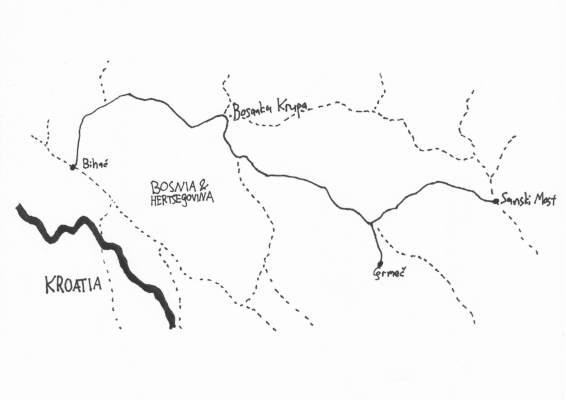 Bosanka Krupa
Bihać
BOSNIA &
HERTSEGOVINA
Sanski Most
Grmeč
KROATIA